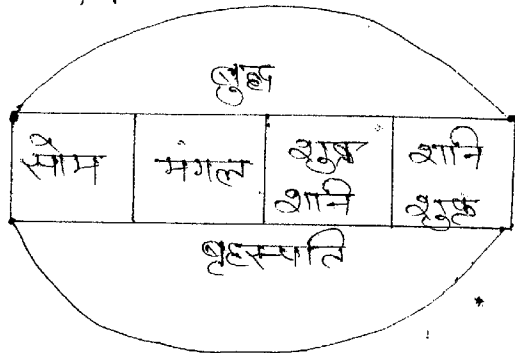 बुद्ध
सोम
मंगल
शुक्र
शनि
शनि
शुक्र
बृहस्पति